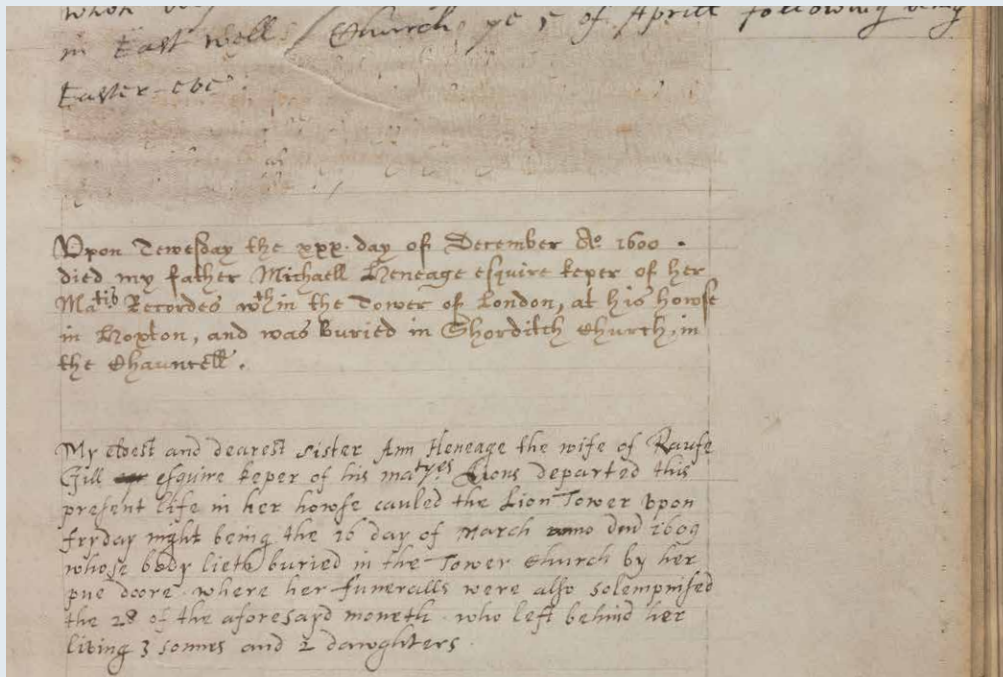 in East well Church ye 5 of Aprill following being
Easter-eve.
Vpon Tewesday the xxx. day of December Ao. 1600.
died my father Michaell Heneage esquire keper of her
Matis Recordes wthin the Tower of London, at his howse
in Hoxton, and was buried in Shorditch Church, in
the Chauncell.
My eldest and dearest sister Ann Heneage the wife of Raufe
Gill esquire keper of his matyes Lions departed this
present life in her howse cauled the Lion Tower vpon
fryday night being the 16 day of March anno dni 1609
whose body lieth buried in the Tower Church by her
pue doore where her funeralls were also solempnised
the 28 of the aforesayd moneth who left behind her
living 3 sonnes and 2 dawghters